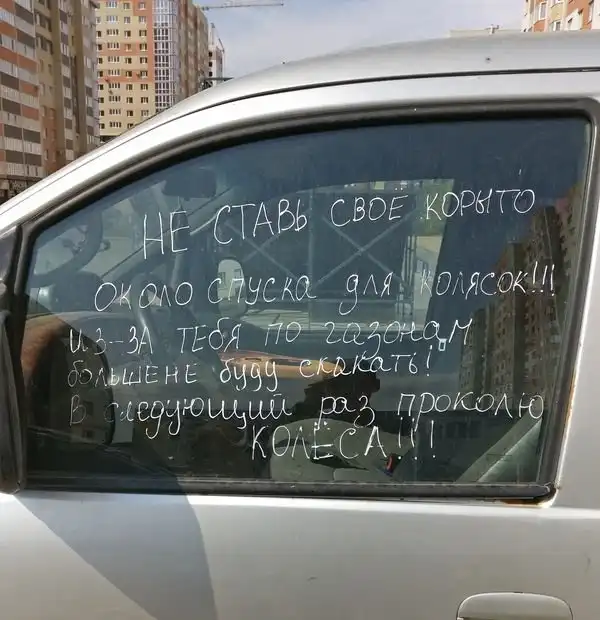 НЕ СТАВЬ СВОЁ КОРЫТО
ОКОЛО СПУСКА ДЛЯ КОЛЯСОК!!!
ИЗ-ЗА ТЕБЯ ПО ГАЗОНАМ
БОЛЬШЕ НЕ БУДУ СКАКАТЬ!
В СЛЕДУЮЩИЙ РАЗ ПРОКОЛЮ
КОЛЁСА!!!